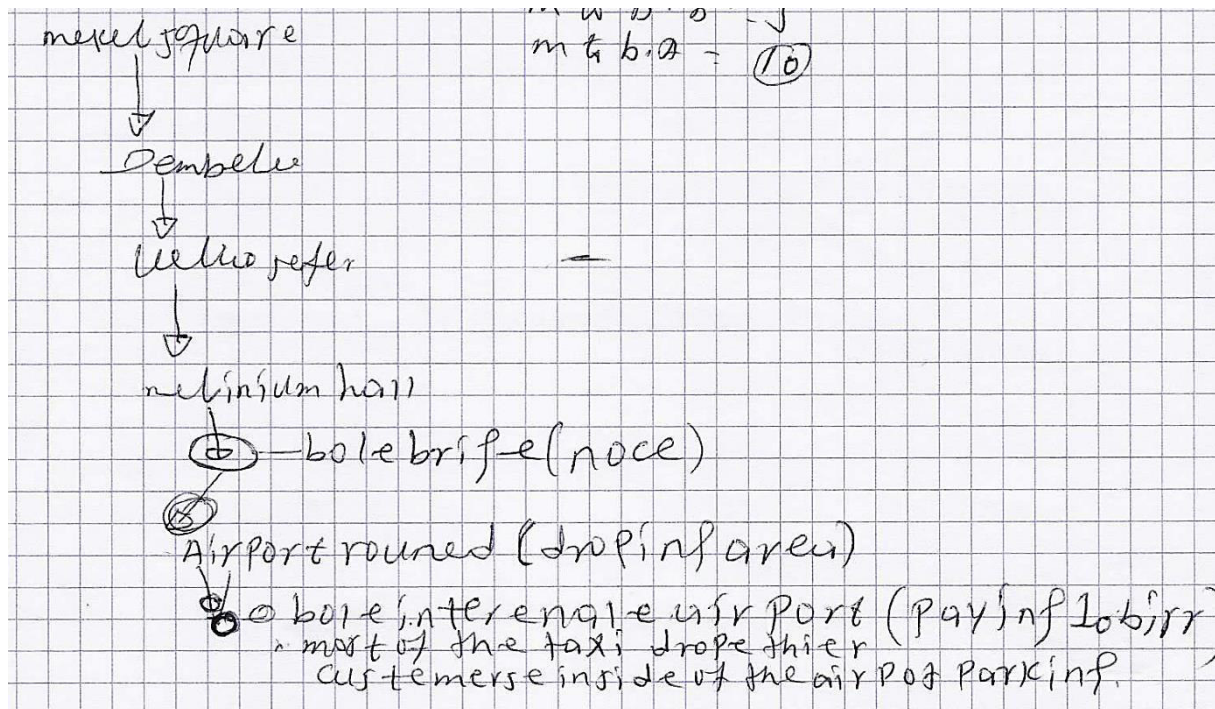 mexel square
m to b.a = 10
Dembele
Wello sefer
melinium hall
bole brige (noce)
Airport rouned (droping area)
bole interenale air port (paying 10 birr)
most of the taxi drope thier
custemerse inside of the air pot parking.